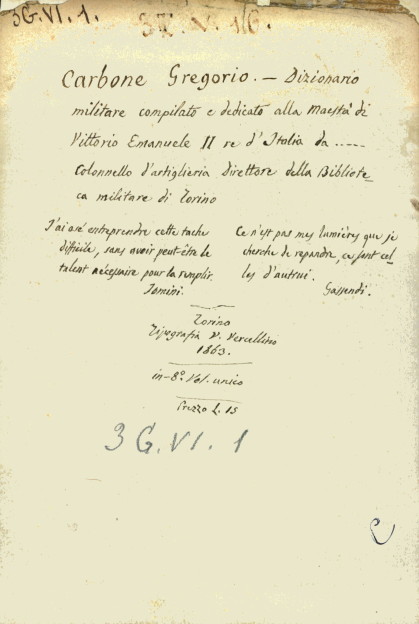 3G.VI.1.
3T.V.16.
Carbone Gregorio. — Dizionario
militare compilato e dedicato alla Maestà di
Vittorio Emanuele II re d'Italia da .....
Colonnello d'artiglieria Direttore della Bibliote=
ca militare di Torino
J'ai osé entreprendre cette tache
difficile, sans avoir peut-être le
talent nécessaire pour la remplir.
Jomini.
Ce n'est pas mes lumières que je
cherche de repandre, ce sont cel=
les d'autrui.
Gassendi.
Torino
Tipografia V. Vercellino
1863.
in-8.° Vol. unico
Prezzo L. 15
3G.VI.1